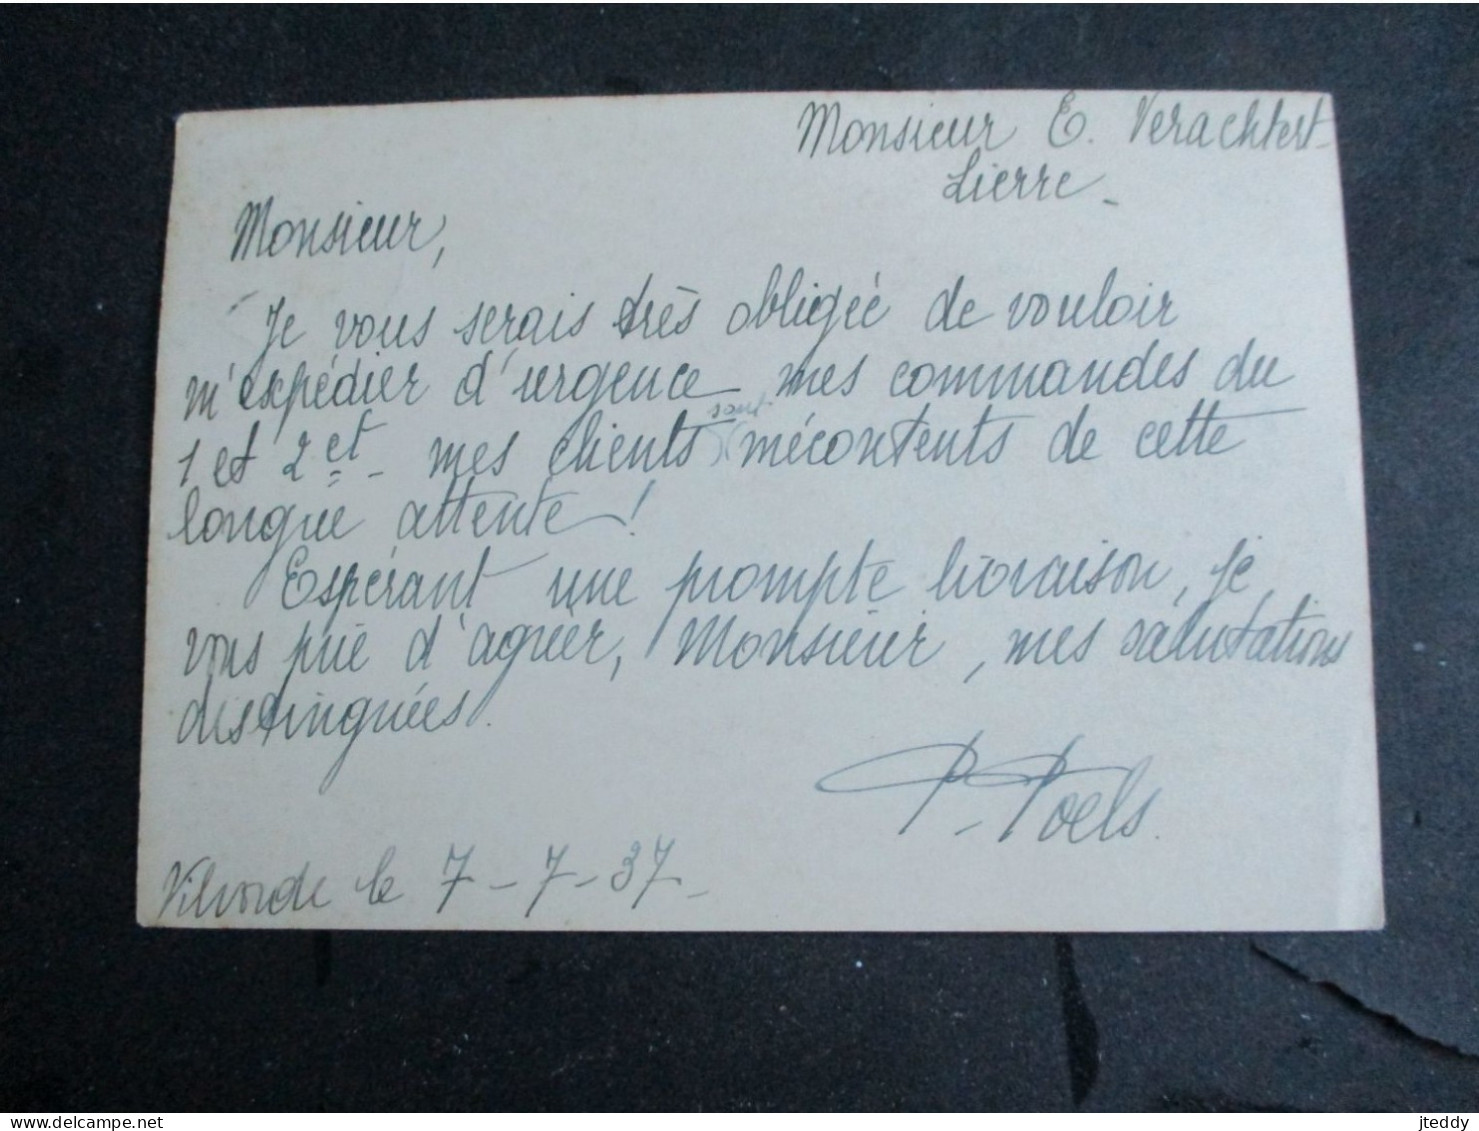 Monsieur E. Verachtert
Lierre -
Monsieur,
Je vous serais très obligée de vouloir
m'expédier d'urgence mes commandes du
1 et 2 ct - mes clients sont mécontents de cette
longue attente !
Espérant une prompte livraison, je
vous prie d'agréer, Monsieur, mes salutations
distinguées.
P. Poels.
Vilvorde le 7 - 7 - 37 -
delcampe.net
jteddy